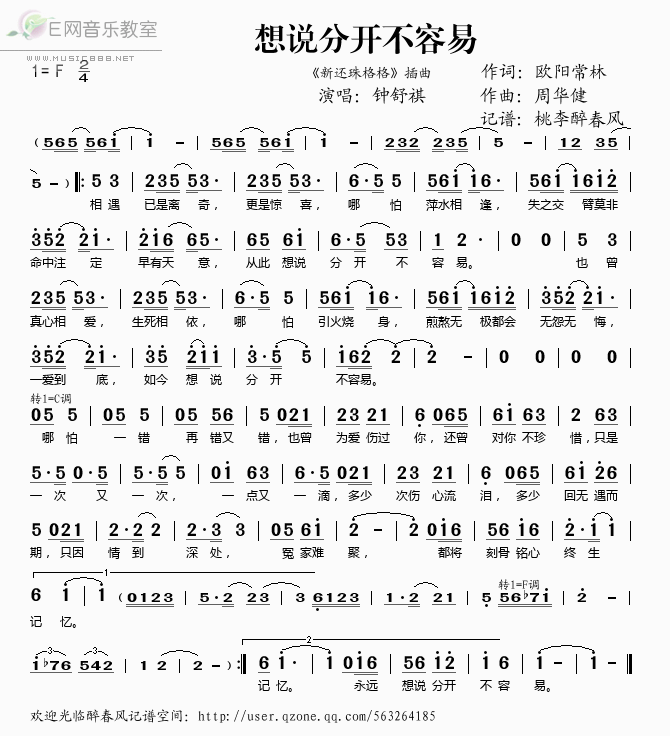 E网音乐教室
www.MUSIC888.NET
想说分开不容易
1=F 2/4
《新还珠格格》插曲
作词：欧阳常林
演唱：钟舒祺
作曲：周华健
记谱：桃李醉春风
相遇 已是离奇， 更是惊喜， 哪怕 萍水相逢， 失之交臂莫非
命中注定 早有天意， 从此想说 分开不容易。 也曾
真心相爱， 生死相依， 哪怕 引火烧身， 煎熬无极都会 无怨无悔，
一爱到底， 如今想说 分开 不容易。
转1=C调
哪怕 一错 再错又错，也曾 为爱伤过你，还曾 对你不珍惜，只是
一次又一次， 一点又一滴，多少 次伤心流泪，多少 回无遇而
期，只因 情到深处， 冤家难聚， 都将 刻骨铭心 终生
1
转1=F调
记忆。
2
记忆。 永远 想说分开 不容易。
欢迎光临醉春风记谱空间：http://user.qzone.qq.com/563264185